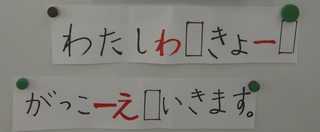 わたしわ□きょー□
がっこーえ□いきます。